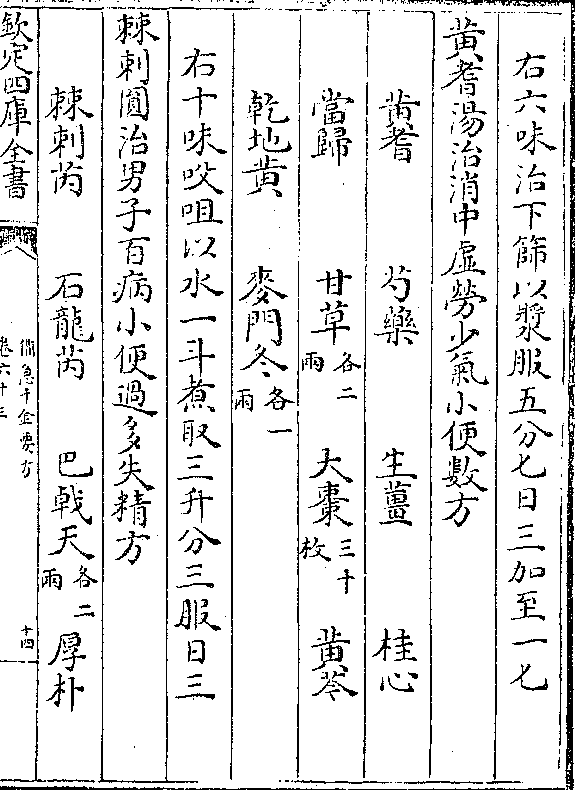 右六味治下篩以漿服五分匕日三加至一匕
黃耆湯治消中虛勞少氣小便數方
黃耆　芍藥　生薑　桂心
當歸　甘草各二兩　大棗三十枚　黃芩
乾地黃　麥門冬各一兩
右十味㕮咀以水一斗煮取三升分三服日三
棘刺圓治男子百病小便過多失精方
棘刺芮　石龍芮　巴戟天各二兩　厚朴
欽定四庫全書
備急千金要方
卷六十三
十四